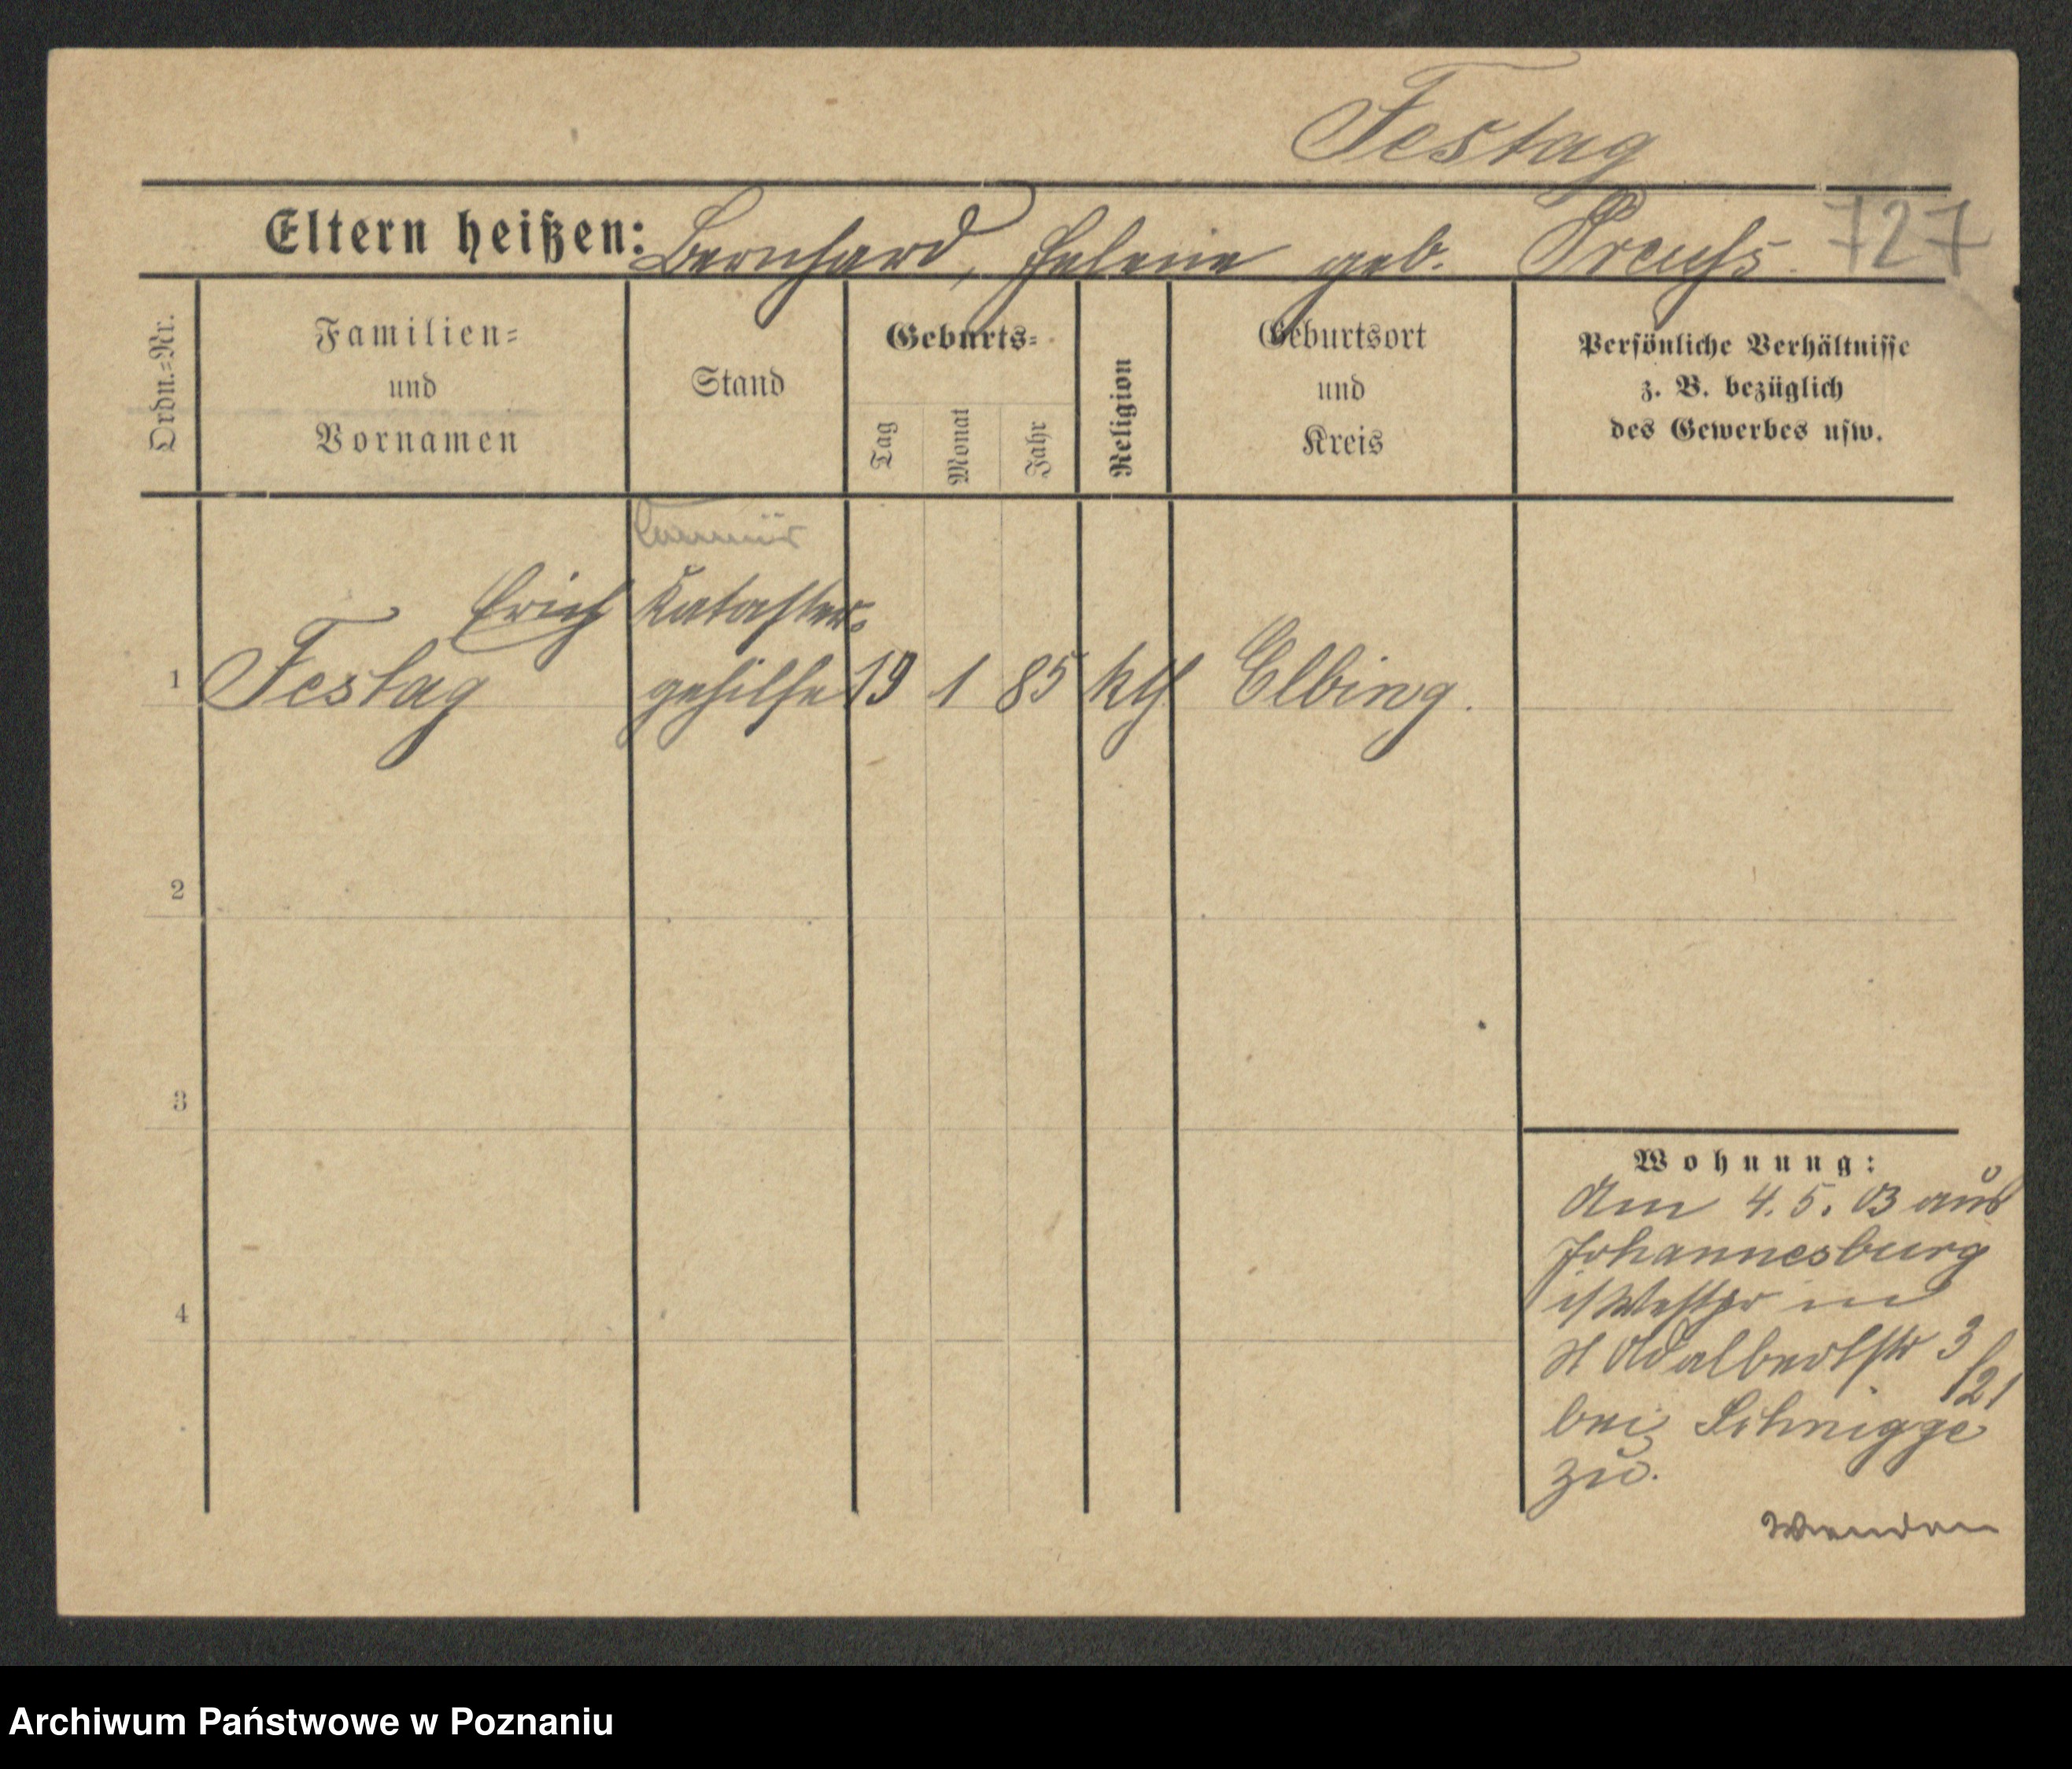 Festag
Eltern heißen: Bernhard, Helene geb. Preuß. 727
Ordn.=Nr.
Familien=
und
Vornamen
Stand
Geburts=
Tag
Monat
Jahr
Religion
Geburtsort
und
Kreis
Persönliche Verhältnisse
z. B. bezüglich
des Gewerbes usw.
Erich Kataster-
1 Festag gehilfe 19 1 85 kth Elbing.
2
3
4
Wohnung:
Am 4. 5. 03 aus
Johannesburg
i/Westpr in
St Adalbertstr 3
/21
bei Schnigge
zu.
Wenden
Archiwum Państwowe w Poznaniu